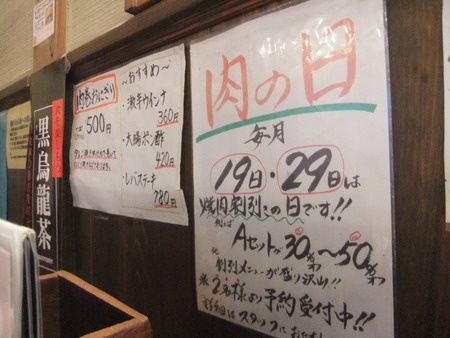 肉の日
毎月
19日・29日は
焼肉割引きの日です!!
例えば
Aセットが30%〜50%
他
割引メニューが盛り沢山!!
※2名様より予約受付中!!
詳細はスタッフに
〜おすすめ〜
激辛ウインナ
360円
大腸ポン酢
420円
レバステーキ
780円
肉巻おにぎり
500円
黒烏龍茶
食を楽しもう